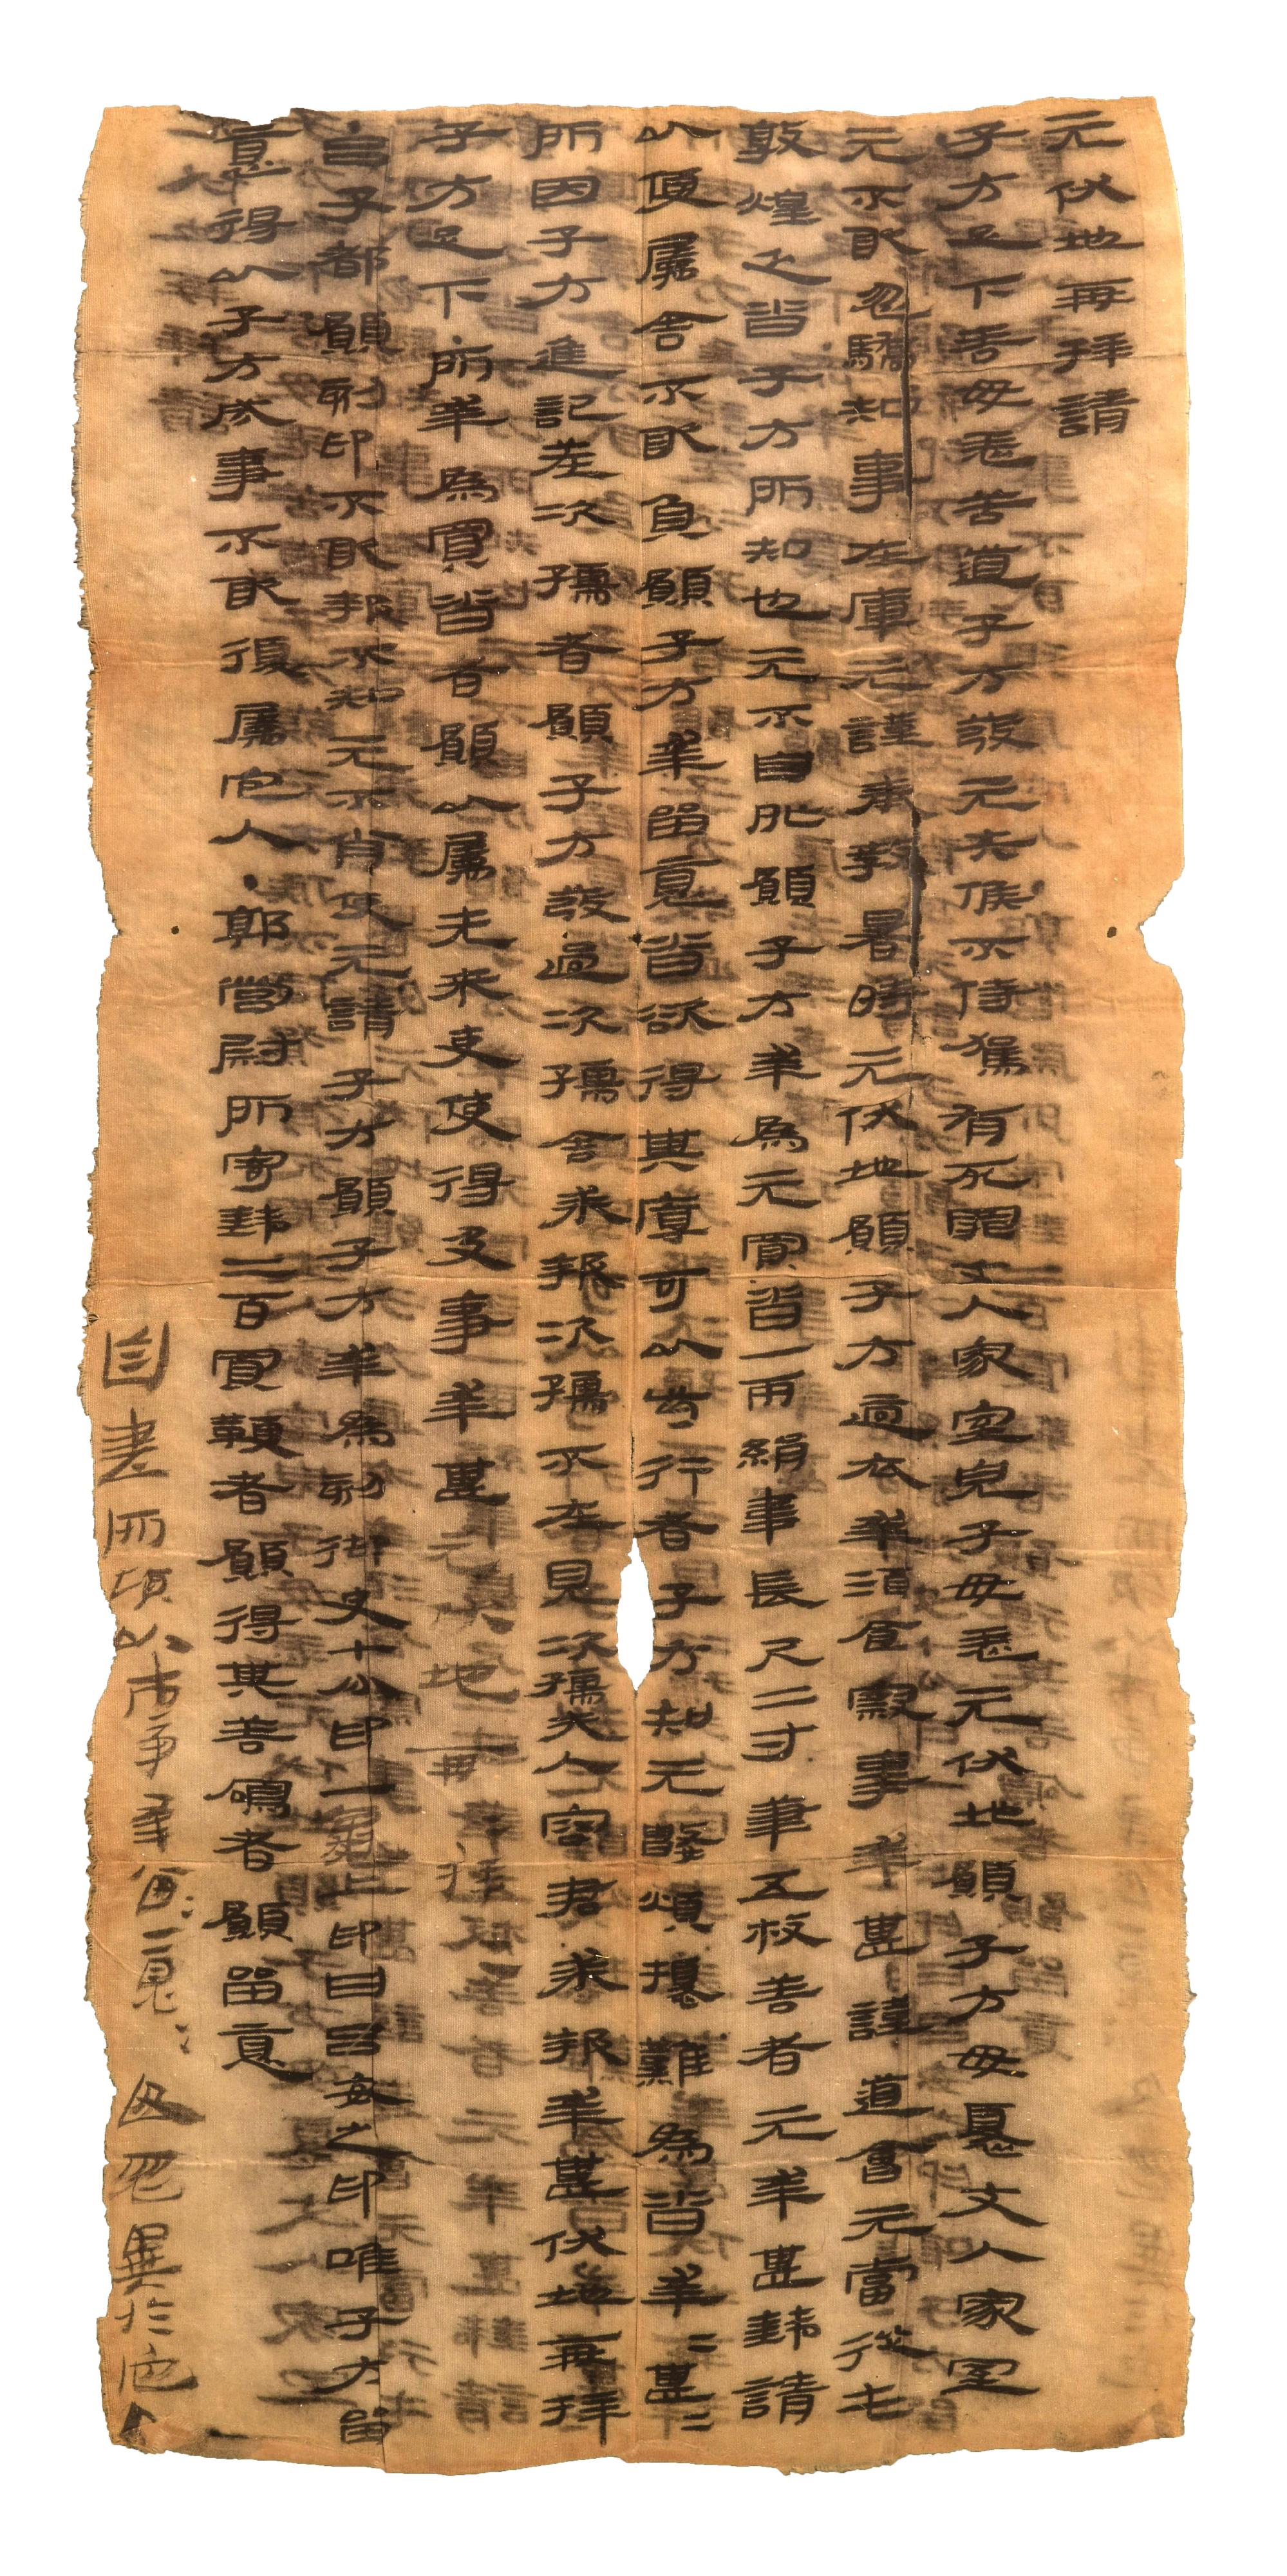 元伏地再拜請
子方足下善毋恙苦道子方發元失候不侍駕有死罪丈人家室兒子毋恙元伏地願子方毋憂丈人家室
元不敢忽驕知事在庫元謹奉教暑時元伏地願子方適衣幸酒食察事幸甚謹道會元當從屯
敦煌乏沓子方所知也元不自外願子方幸為元買沓一兩絹韋長尺二寸筆五枚善者元幸甚錢請
以便屬舍不敢負願子方幸留意沓欲得其厚可以步行者子方知元數煩擾難為沓幸=甚=
所因子方進記差次孺者願子方發過次孺舍求報次孺不在見次孺夫人容君求報幸甚伏地再拜
子方足下所幸為買沓者願以屬先來吏使得及事幸甚元伏地再拜再拜
吕子都願刻印不敢報不知元不肖使元請子方願子方幸為刻御史七分印一龜上印曰吕安之印唯子方留
意得以子方成事不敢復屬它人●郭營尉所寄錢二百買鞭者願得其善鳴者願留意
自書所願以市事幸留=意=毋忽異於它人